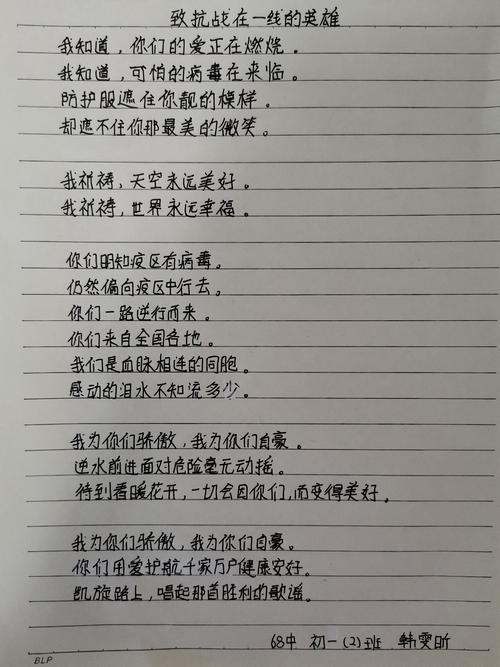 致抗战在一线的英雄
我知道，你们的爱正在燃烧。
我知道，可怕的病毒在来临。
防护服遮住你靓的模样。
却遮不住你那最美的微笑。
我祈祷，天空永远美好。
我祈祷，世界永远幸福。
你们明知疫区有病毒。
仍然偏向疫区中行去。
你们一路逆行而来。
你们来自全国各地。
我们是血脉相连的同胞。
感动的泪水不知流多少。
我为你们骄傲，我为你们自豪。
逆水前进面对危险毫无动摇。
待到春暖花开，一切会因你们，而变得美好。
我为你们骄傲，我为你们自豪。
你们用爱护航千家万户健康安好。
凯旋路上，唱起那首胜利的歌谣。
68中 初一（2）班 韩雯昕
BLP